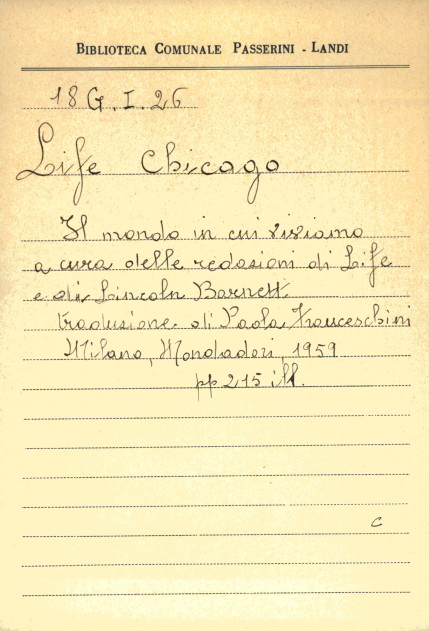 BIBLIOTECA COMUNALE PASSERINI - LANDI
18 G. I. 26
Life Chicago
Il mondo in cui viviamo
a cura delle redazioni di Life
e di Lincoln Barnett
traduzione di Paola Franceschini
Milano, Mondadori, 1959
pp 215 ill.
c